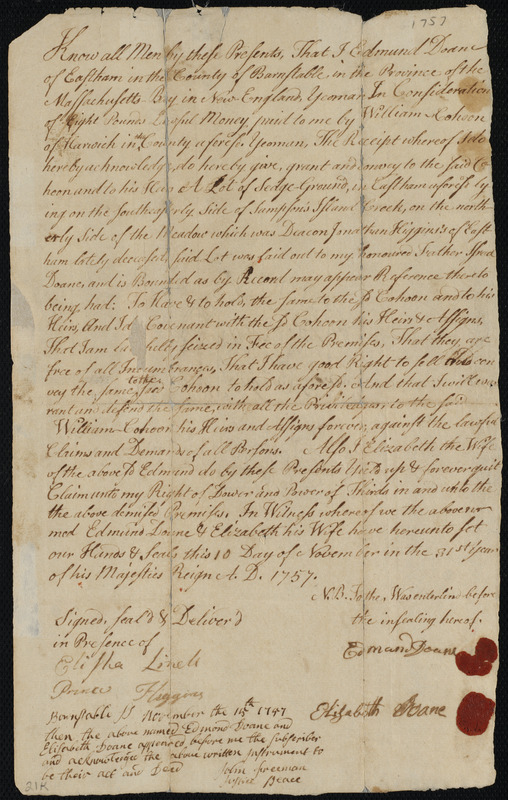 1757
Know all Men by these Presents, That I Edmund Doane
of Eastham in the County of Barnstable, in the Province of the
Massachusetts Bay in New England, Yeoman, In Consideration
of Eight Pounds Lawful Money paid to me by William Cohoon
of Harwich in ye County aforesd. Yeoman, The Receipt whereof I do
hereby acknowledge, do hereby give, grant and convey to the said Co
hoon and to his Heirs A Lot of Sedge-Ground, in Eastham aforesd ly
ing on the Southeasterly Side of Sampson's Island Creek, on the north
erly Side of the Meadow which was Deacon Jonathan Higgins's of East
ham lately deceased, said Lot was laid out to my honoured Father
Doane, and is Bounded as by Record may appear Reference thereto
being had: To Have & to hold, the same to the sd Cohoon and to his
Heirs, And I do Covenant with the sd Cohoon his Heirs & Assigns,
That I am lawfully seized in Fee of the Premises, That they are
free of all Incumbrances, That I have good Right to sell & con
vey the same to the sd Cohoon to hold as aforesd. And that I will war
rant and defend the same, with all the Priviledges, to the said
William Cohoon his Heirs and Assigns forever, against the lawful
Claims and Demands of all Persons. Also I Elizabeth the Wife
of the above sd Edmund do by these Presents yield up & forever quit
Claim unto my Right of Dower and Power of Thirds in and unto the
the above demised Premises. In Witness whereof we the above na
med Edmund Doane & Elizabeth his Wife have hereunto set
our Hands & Seals this 10 Day of November in the 31st Year
of his Majesties Reign A. D. 1757.
N.B. To the, Was enterlin'd before
the insealing hereof.
Signed, seal'd & Deliver'd
in Presence of
Elisha Linell
Prince Higgins
Edmund Doane
Elisabeth Doane
Barnstable Ss November the 14th 1757
then the above named Edmond Doane and
Elisabeth Doane appeared before me the subscriber
and acknowledge the above written Instrument to
be their act and Deed
John Freeman
Justice Peace
21R